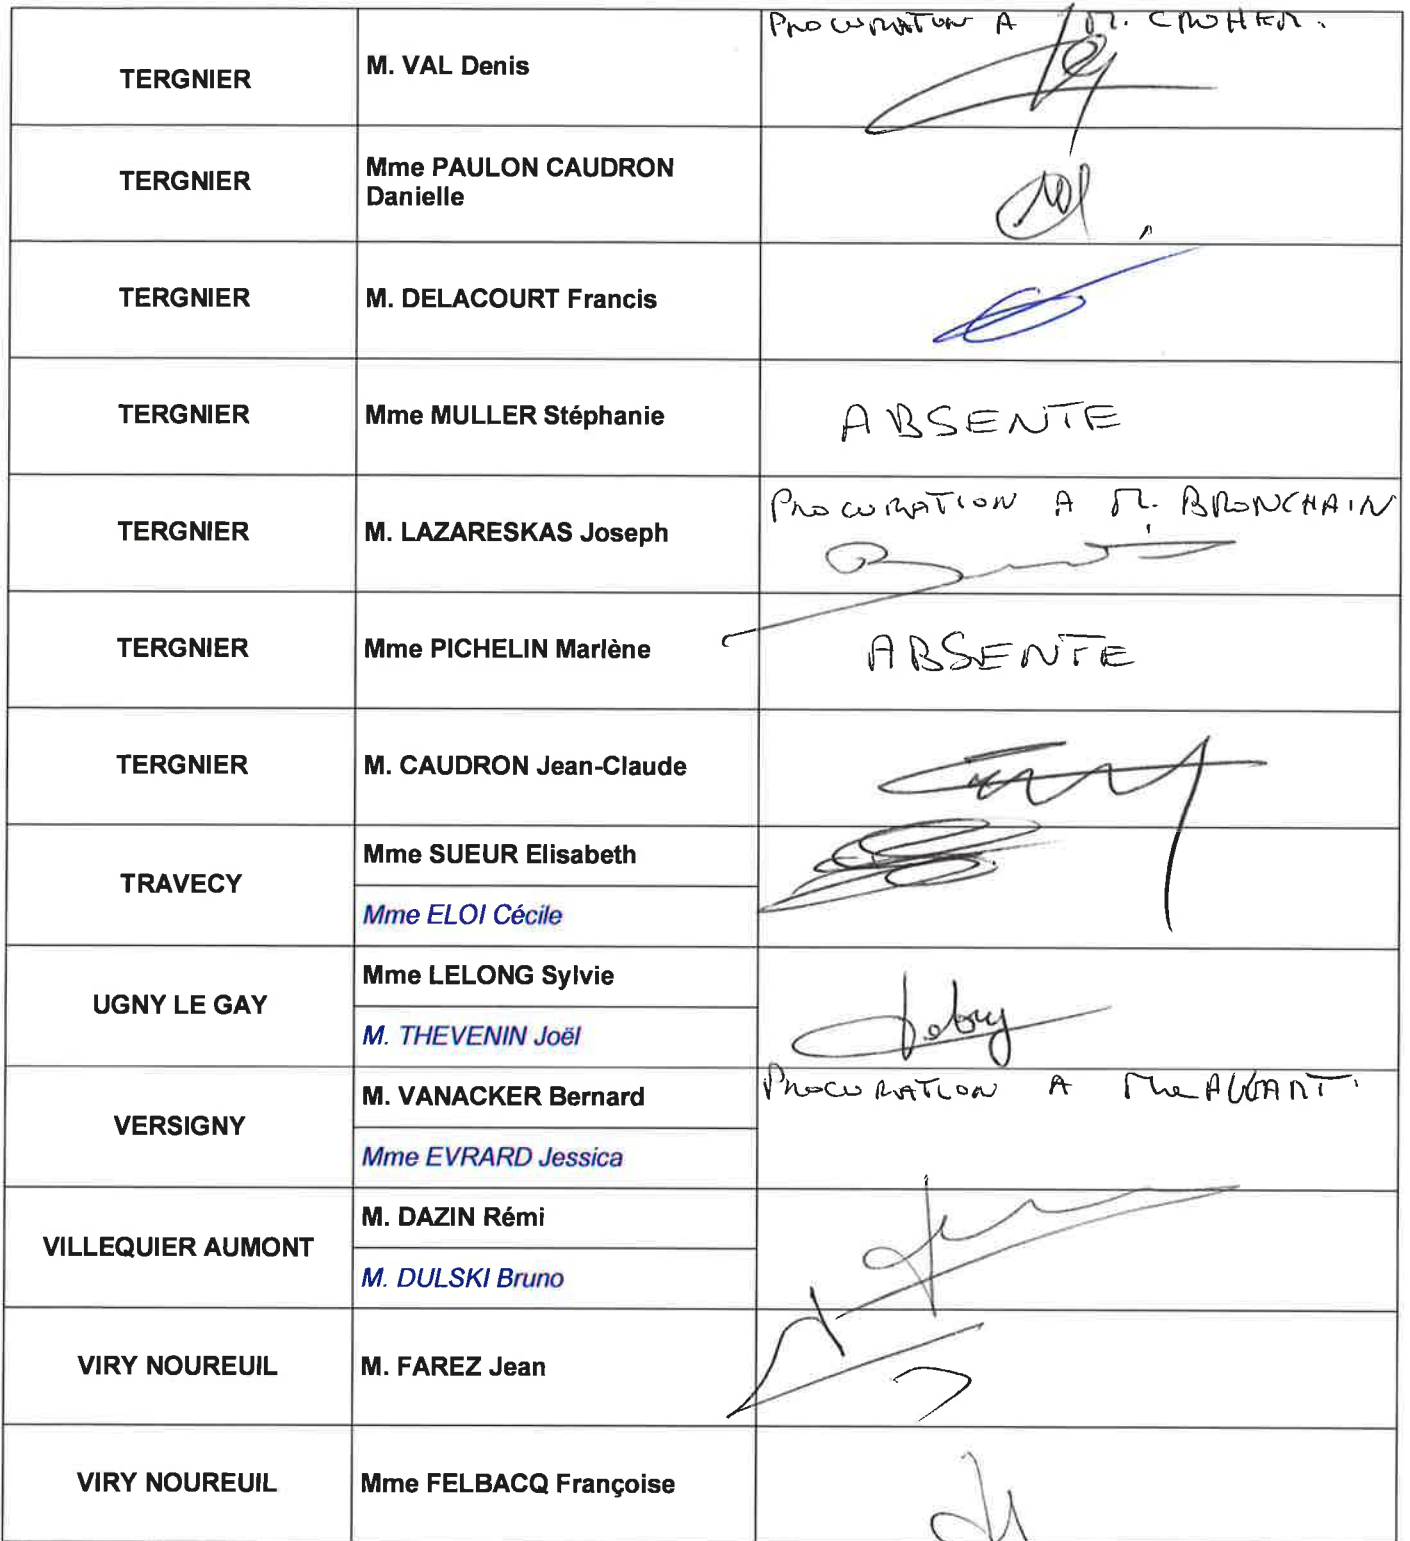 PROCURATION A M. CROHEM.
TERGNIER
M. VAL Denis
TERGNIER
Mme PAULON CAUDRON
Danielle
TERGNIER
M. DELACOURT Francis
TERGNIER
Mme MULLER Stéphanie
ABSENTE
TERGNIER
M. LAZARESKAS Joseph
PROCURATION A M. BRONCHAIN
TERGNIER
Mme PICHELIN Marlène
ABSENTE
TERGNIER
M. CAUDRON Jean-Claude
TRAVECY
Mme SUEUR Elisabeth
Mme ELOI Cécile
UGNY LE GAY
Mme LELONG Sylvie
M. THEVENIN Joël
VERSIGNY
M. VANACKER Bernard
PROCURATION A Mme
Mme EVRARD Jessica
VILLEQUIER AUMONT
M. DAZIN Rémi
M. DULSKI Bruno
VIRY NOUREUIL
M. FAREZ Jean
VIRY NOUREUIL
Mme FELBACQ Françoise